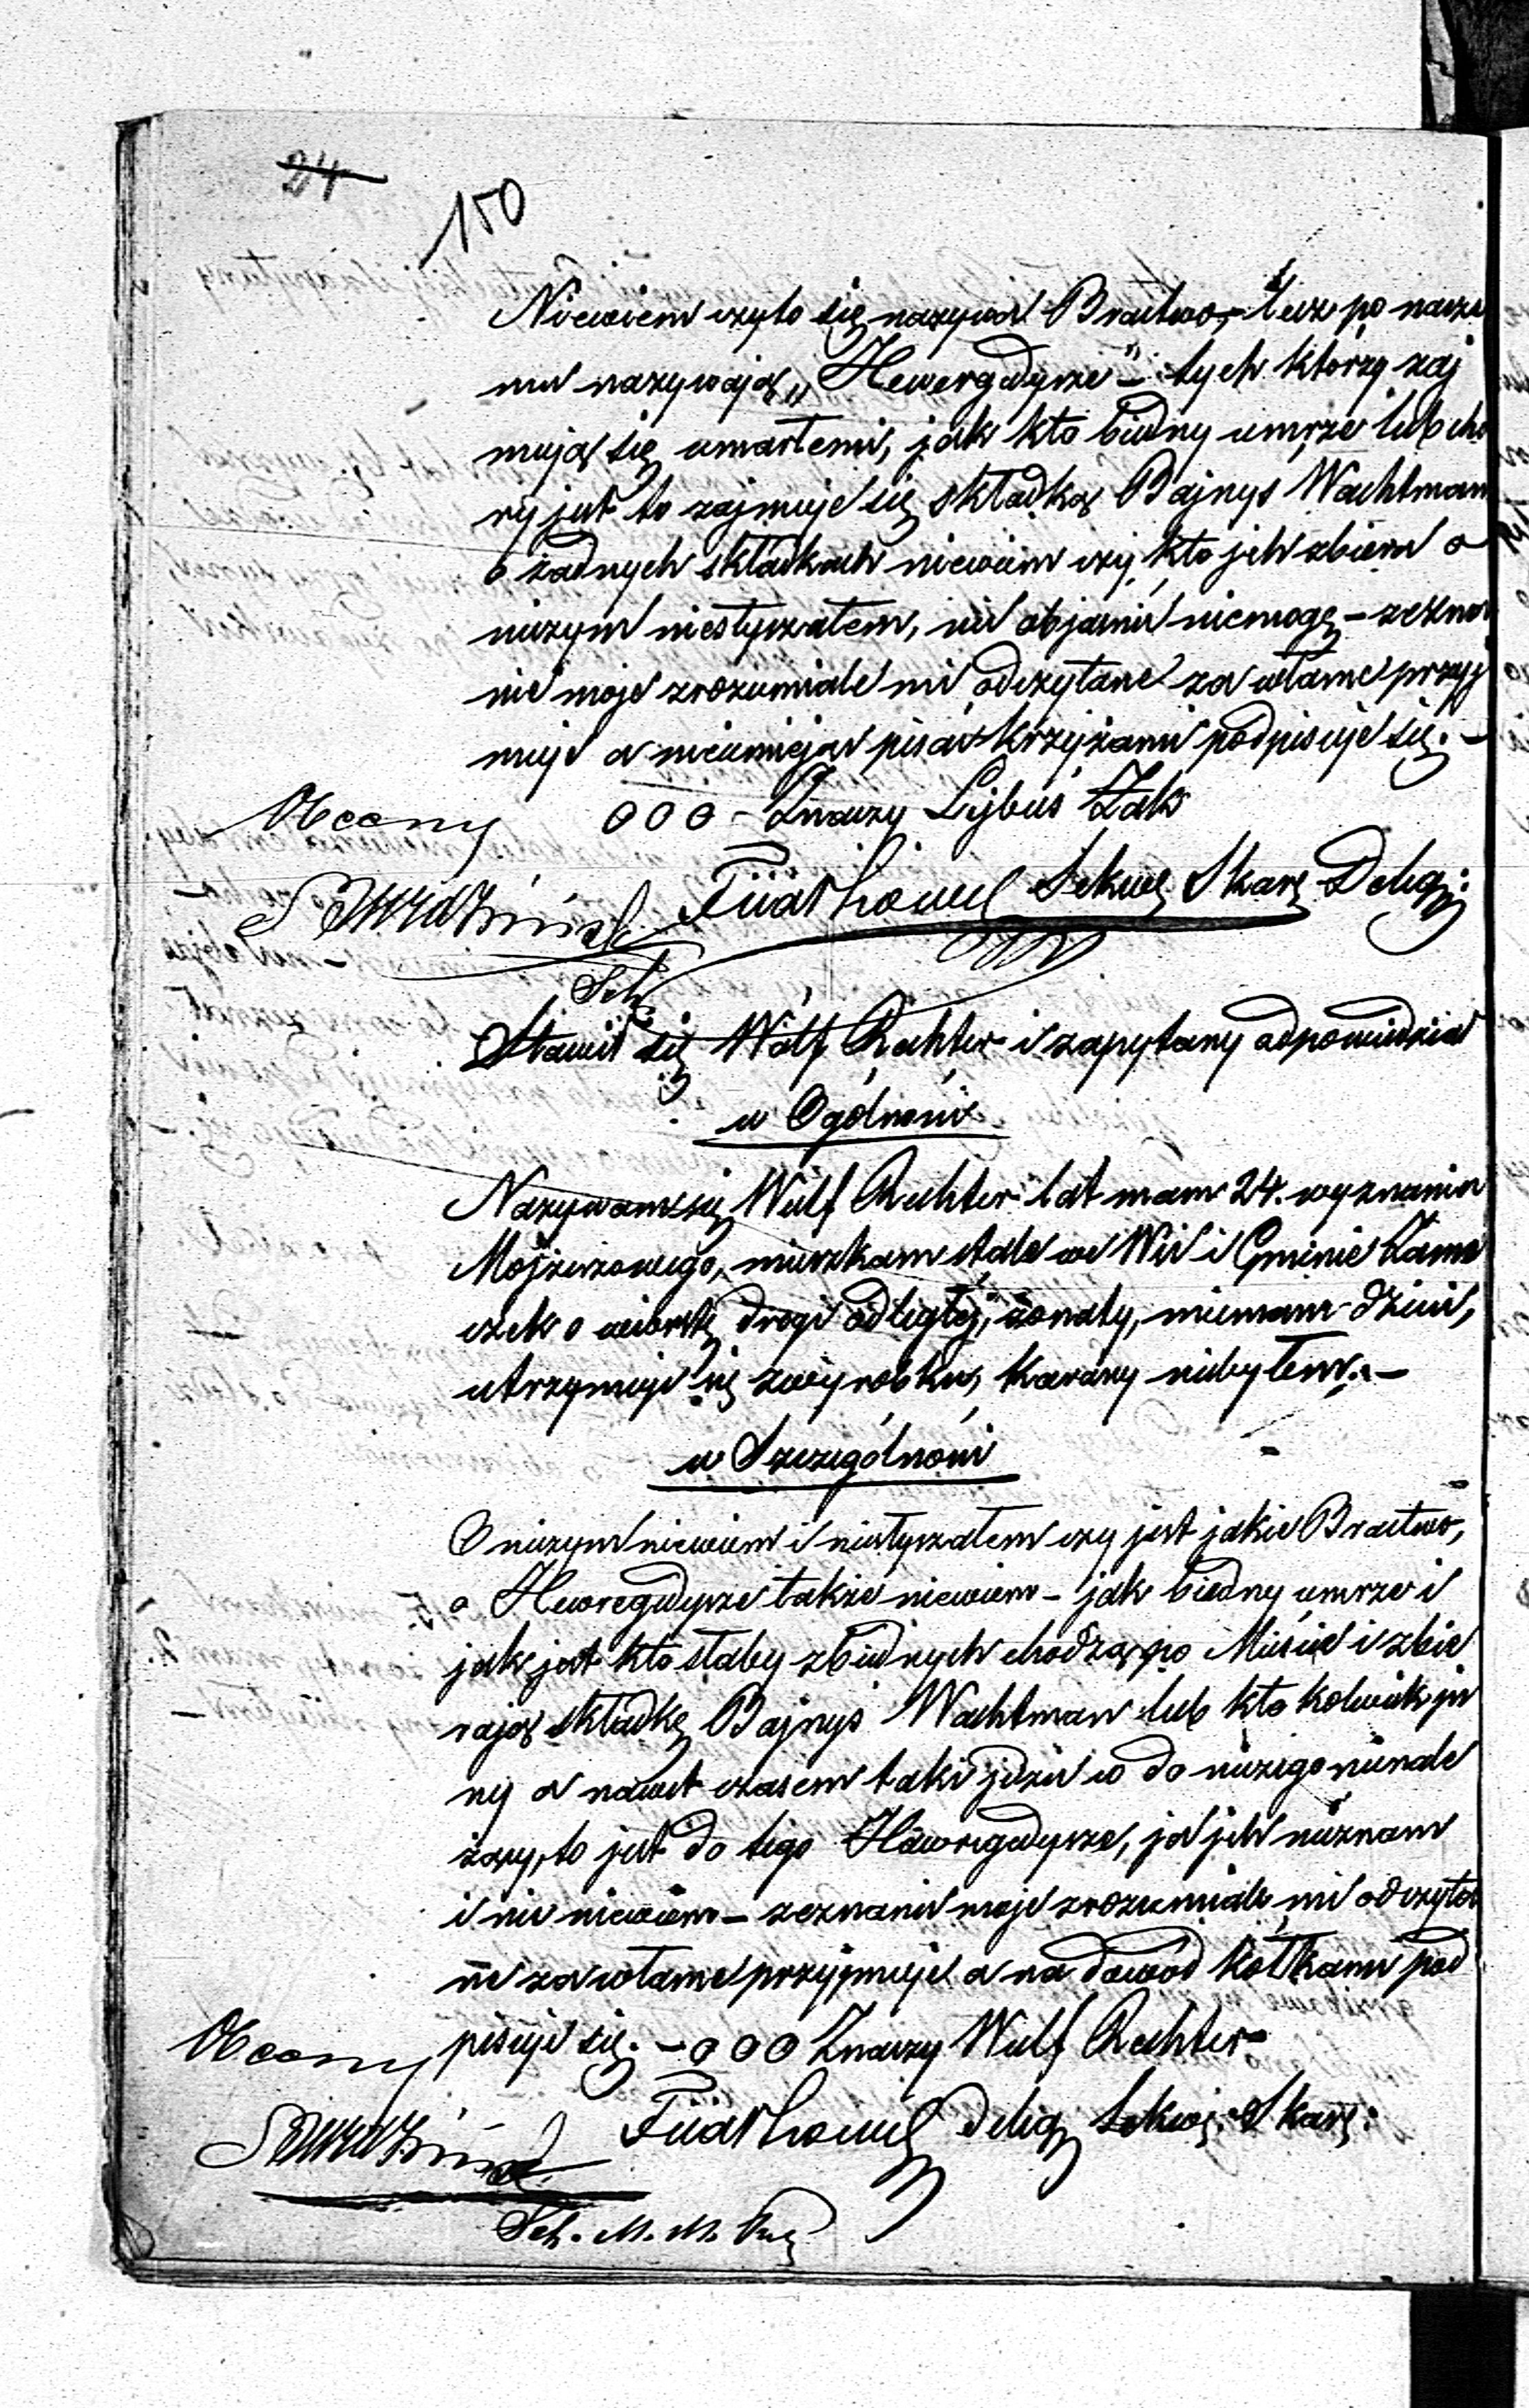 24
150
Niewiem czyto się nazywa Bractwo, lecz po nasze
mu nazywają „Hewergdysze" – tych którzy zaj
mują się umarłemi, jak kto biedny umrze lub cho
ry jest to zajmuje się składką Bajnys Wachtman
o żadnych składkach niewiem czy kto jch zbiera o
niczym niesłyszałem, nic objasnić niemogę – zezna
nie moje zrozumiale mi odczytane za własne przyj
muje a nieumiejąc pisać krzyżami podpisuje się. –
Obecny 000 – Znaczy Lejbuś Żak
Sekwe Skarz Deleg:
Sek
Stawił się Wólf Rechter i zapytany odpowiedział
w Ogólności
Nazywam się Wulf Rechter lat mam 24. wyznania
Mojżeszowego, mieszkam stale we Wsi i Gminie Zame
czek o wiorstę drogi odległej, żonaty, niemam dzieci,
utrzymuje się z wyrobku, karany niebyłem. –
w Szczególności
O niczym niewiem i niesłyszałem czy jest jakie Bractwo,
o Hewregdysze także niewiem – jak biedny umrze i
jak jest kto słaby z biednych chodzą po Mieście i zbie
rają składkę Bajnyś Wachtman lub kto kolwiek jn
ny a nawet czasem taki jdzie co do niczego nienale
żący, to jest do tego Hewregdysze, ja jch nieznam
i nic niewiem – zeznanie moje zrozumiale mi odczyta
ne za własne przyjmuje a na dowód kółkami pod
pisuje się. – 000 Znaczy Wulf Rechter
Obecny
Deleg Sekwe: Skarz:
Sek. M. M.